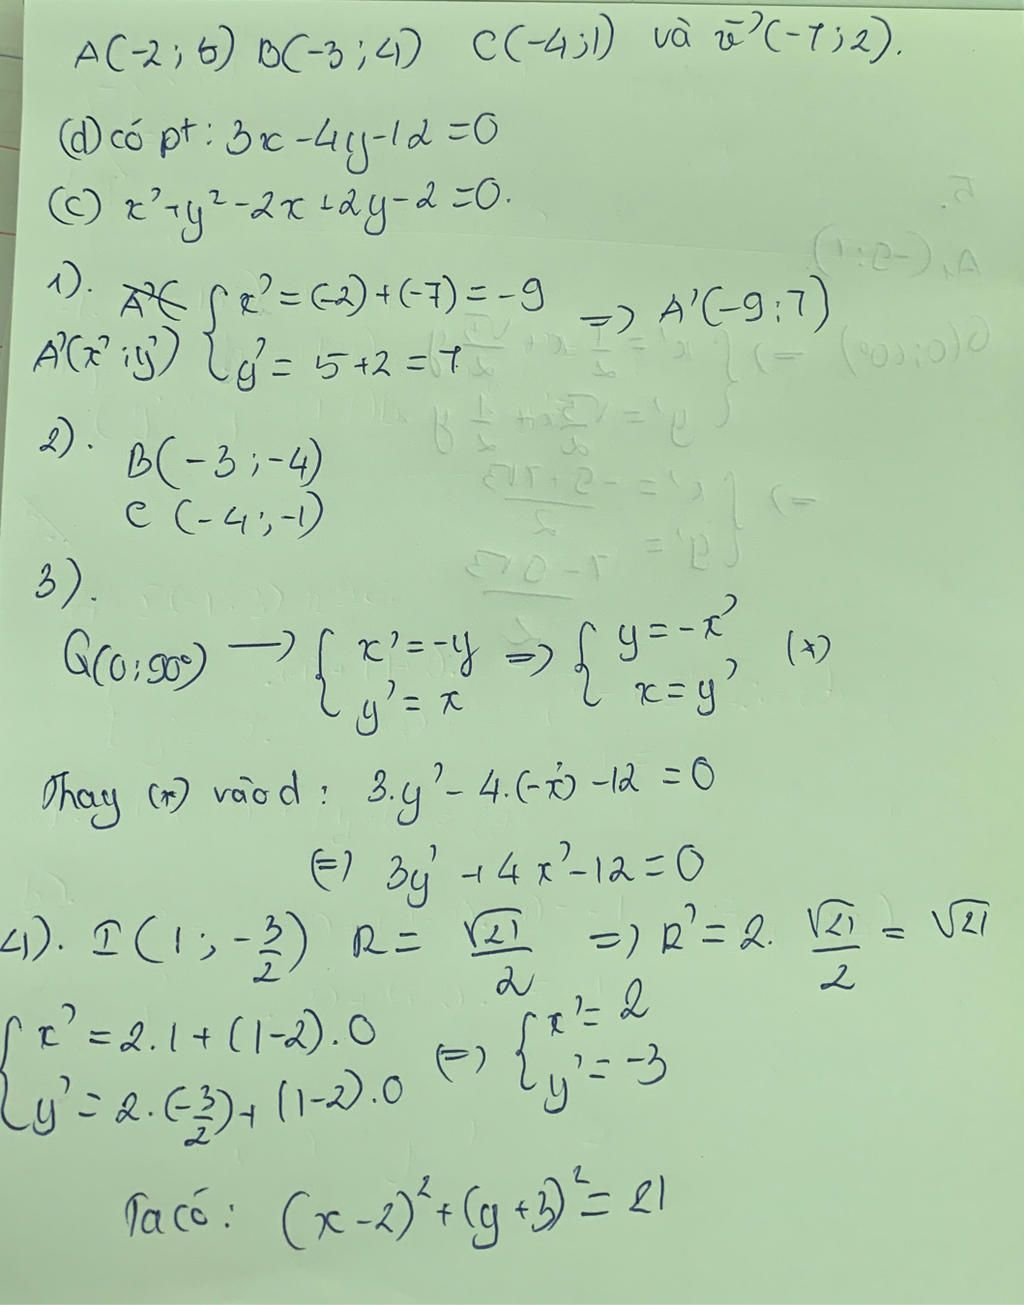 A(-2; 5) B(-3; 4) C(-4; 1) và v⃗(-7; 2).
(d) có pt: 3x - 4y - 12 = 0
(C) x² + y² - 2x + 2y - 2 = 0.
1). { x' = (-2) + (-7) = -9 => A'(-9; 7)
A'(x'; y') { y' = 5 + 2 = 7
2). B(-3; -4)
C (-4; -1)
3).
Q(0; 90°) → { x' = -y => { y = -x' (*)
{ y' = x { x = y'
Thay (*) vào d: 3.y' - 4.(-x') - 12 = 0
(=) 3y' + 4x' - 12 = 0
4). I(1; -3/2) R = √21/2 => R' = 2. √21/2 = √21
{ x' = 2.1 + (1-2).0 (=) { x' = 2
{ y' = 2.(-3/2) + (1-2).0 { y' = -3
Ta có: (x-2)² + (y+3)² = 21